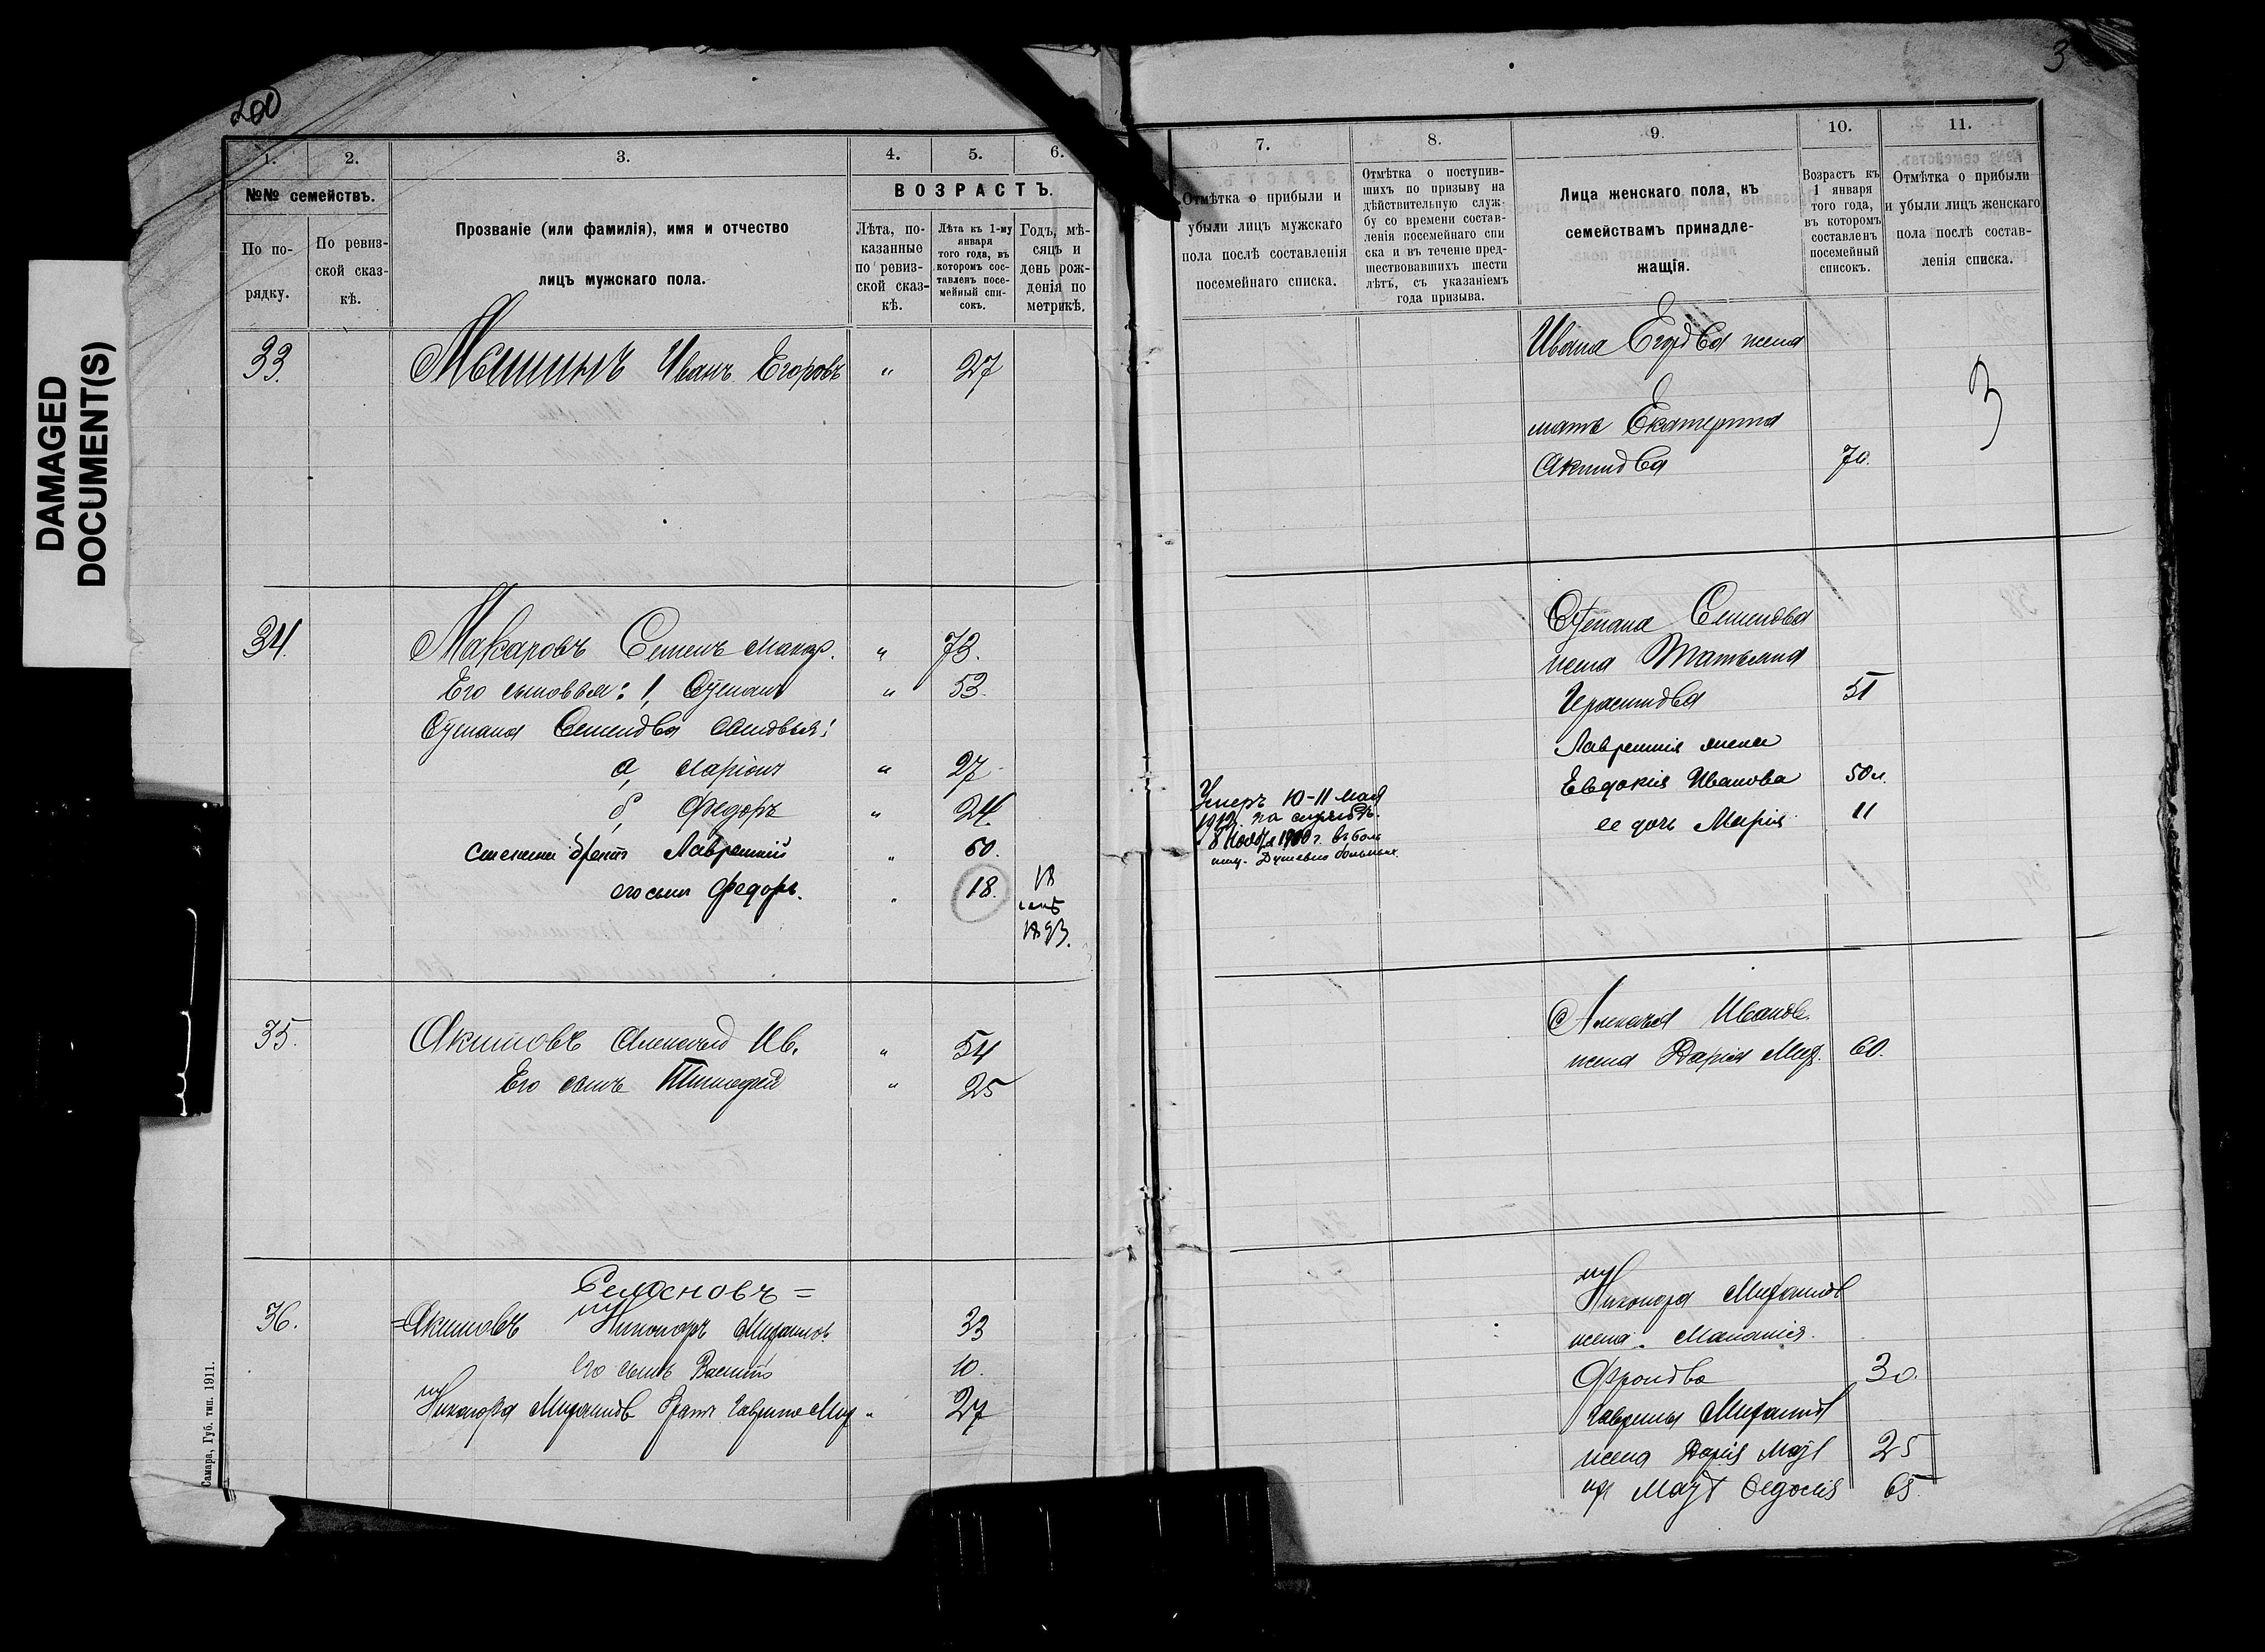 DAMAGED
DOCUMENT(S)
200
1.
2.
3.
4.
5.
6.
№№ семействъ.
Прозваніе (или фамилія), имя и отчество
лицъ мужскаго пола.
ВОЗРАСТЪ.
По по-
рядку.
По ревиз-
ской сказ-
кѣ.
Лѣта, по-
казанные
по ревиз-
ской сказ-
кѣ.
Лѣта къ 1-му
января
того года, въ
которомъ сос-
тавленъ посе-
мейный спи-
сокъ.
Годъ, мѣ-
сяцъ и
день рож-
денія по
метрикѣ.
33. Иванъ Егоровъ " 27
34. Макаровъ Семенъ Макар. " 73.
Его сыновья: 1, Степанъ " 53.
Степана Семенова сыновья:
а, Ларіонъ " 27
б, Федоръ " 24.
Степана братъ Лаврентій " 60.
его сынъ Федоръ. " 18. 18
1893.
35. Акимовъ Ив. " 54
Его сынъ Тимофей " 25
36. =Акимовъ Никоноръ Михайлов. 33
Его сынъ 10.
Никонора Михайлов братъ Гаврило Мих " 27
Самара, Губ. тип. 1911.
3
7.
8.
9.
10.
11.
Отмѣтка о прибыли и
убыли лицъ мужскаго
пола послѣ составленія
посемейнаго списка.
Отмѣтка о поступив-
шихъ по призыву на
дѣйствительную служ-
бу со времени состав-
ленія посемейнаго спи
ска и въ теченіе пред-
шествовавшихъ шести
лѣтъ, съ указаніемъ
года призыва.
Лица женскаго пола, къ
семействамъ принадле-
жащія.
Возрастъ къ
1 января
того года,
въ которомъ
составленъ
посемейный
списокъ.
Отмѣтка о прибыли
и убыли лицъ женскаго
пола послѣ состав-
ленія списка.
Ивана Егорова жена
мать Екатерина
Акимова 70.
3
Степана Семенова
жена Татьяна
Герасимова 51
Лаврентія жена
Евдокія Иванова 50 л.
ее дочь Марія 11
Умеръ 10-11 мая
Душевно больныхъ
Иванов.
жена Дарія Мих. 60.
Никонора Михайлов
жена Маланія
30.
Гаврилы Михайлов
жена Дарія 25
65.